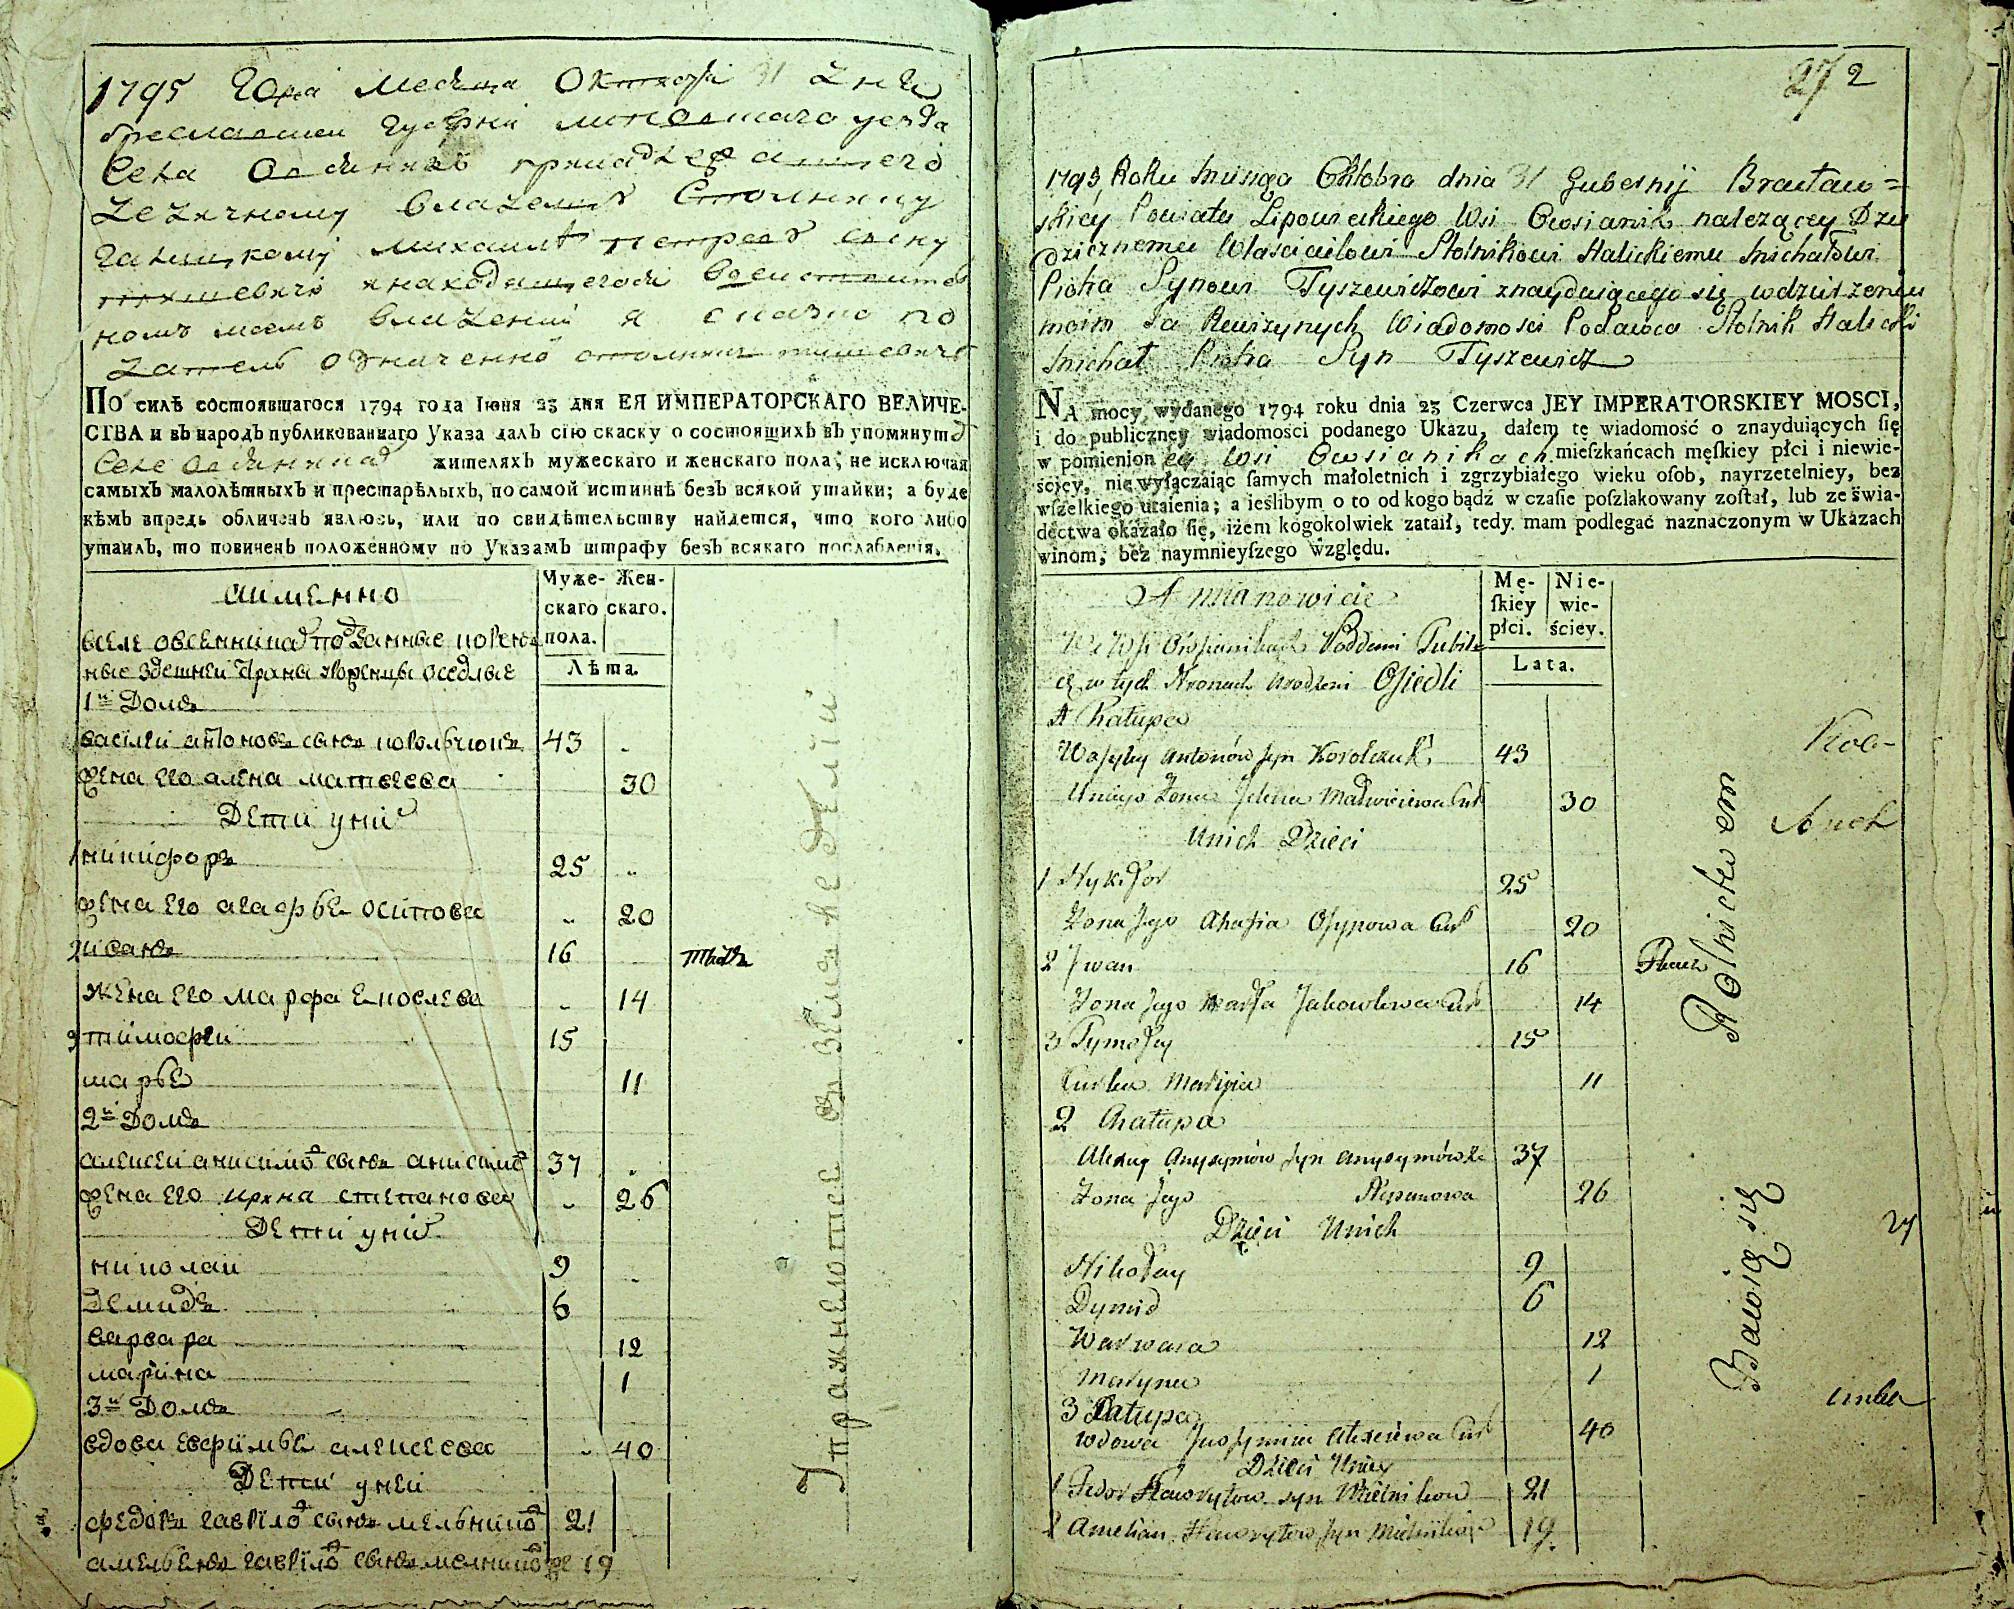 1795 года месяца Октября 31 дня
Бреславшей губерни уезда
Села принадлежащего
владелцу Столнику
галицкому Михаилъ Петровъ сыну
находящегося
номъ моемъ владении я
означенной столникъ
По силѣ состоявшагося 1794 года Іюня 23 дня ЕЯ ИМПЕРАТОРСКАГО ВЕЛИЧЕ-
СТВА и въ народъ публикованнаго Указа далъ сію скаску о состоящихъ въ упомянутѡ
Селе жителяхъ мужескаго и женскаго пола; не исключая
самыхъ малолѣтныхъ и престарѣлыхъ, по самой истиннѣ безъ всякой утайки; а буде
кѣмъ впредь обличенъ явлюсь, или по свидѣтельству найдется, что кого либо
утаилъ, то повиненъ положенному по Указамъ штрафу безъ всякаго послабленія.
аимено
Муже- Жен-
скаго скаго.
пола.
Лѣта.
вселе овсенникахъ подданные
ные здешней оседлые
1й Домъ
василей антоновъ сынъ корольчюкъ 43
жена его алена матвеева 30
Дети унихъ
1 никифоръ 25
жена его агафья осипова 20
2 иванъ 16 ткачъ
жена его марфа 14
3 тимофей 15
марья 11
2й Домъ
алексей анисимовъ сынъ анисимовъ 37
жена его ирина степанова 26
Дети унихъ
николай 9
Демидъ 6
варвара 12
марина 1
3й Домъ
вдова евфимья алексеева 40
Дети уней
федоръ гавриловъ сынъ мельниковъ 21
амельянъ гавриловъ сынъ мелниковъ 19
Упражняютсе въ земледелии
27 2
1795 Roku Msiąca Oktobra dnia 31 Gubernij Bracław=
skiey Powiatu Lipowieckiego Wsi Owsianik należącey Dzie
dzicznemu Właścicielowi Stolnikowi Halickiemu Michałowi
Piotra Synowi Tyszewiczowi znayduiącego się wdzierżeniu
moim Ja Rewizynych Wiadomosci Podawca Stolnik Halicki
Michał Piotra Syn Tyszewicz
NA mocy wydanego 1794 roku dnia 23 Czerwca JEY IMPERATORSKIEY MOSCI,
i do publiczney wiadomości podanego Ukazu, dałem tę wiadomość o znayduiących ſię
w pomienioney Wsi Owsianikach mieſzkańcach męſkiey płci i niewie-
ściey, nie wyłączaiąc ſamych małoletnich i zgrzybiałego wieku oſob, nayrzetelniey, bez
wſzelkiego utaienia; a ieślibym o to od kogo bądź w czaſie poſzlakowany zoſtał, lub ze świa-
dectwa okazało ſię, iżem kogokolwiek zataił, tedy mam podlegać naznaczonym w Ukazach
winom, bez naymnieyſzego względu.
A mianowicie
Mę- Nie-
ſkiey wie-
płci. ściey.
Lata.
We Wsi Owsianikach Poddani
w tych Stronach Urodzeni Osiedli
1 Chałupa
Wasyley Antonów syn Korolczuk 43
Uniego Żona Jelena Matwieiewa Curka 30
Unich Dzieci
1 Nykifor 25
Żona Jego Ahafia Osypowa Curka 20
2 Jwan 16 Tkacz
Żona Jego Marfa Jakowlewa Curka 14
3 Tymofiy 15
Curka Maryia 11
2 Chałupa
Alexiey Anysymów syn Anysymów 37
Żona Jego Stepanowa 26
Dzieci Unich
Nikołay 9
Dymid 6
Warwara 12
Maryna 1
3 Chałupa
wdowa Alexiiewa Curka 40
Dzieci Uniey
1 Fedor Hawryłow syn Mielnikow 21
2 Amelian Hawryłow syn Mielnikow 19
Rolnictwem
Bawią się